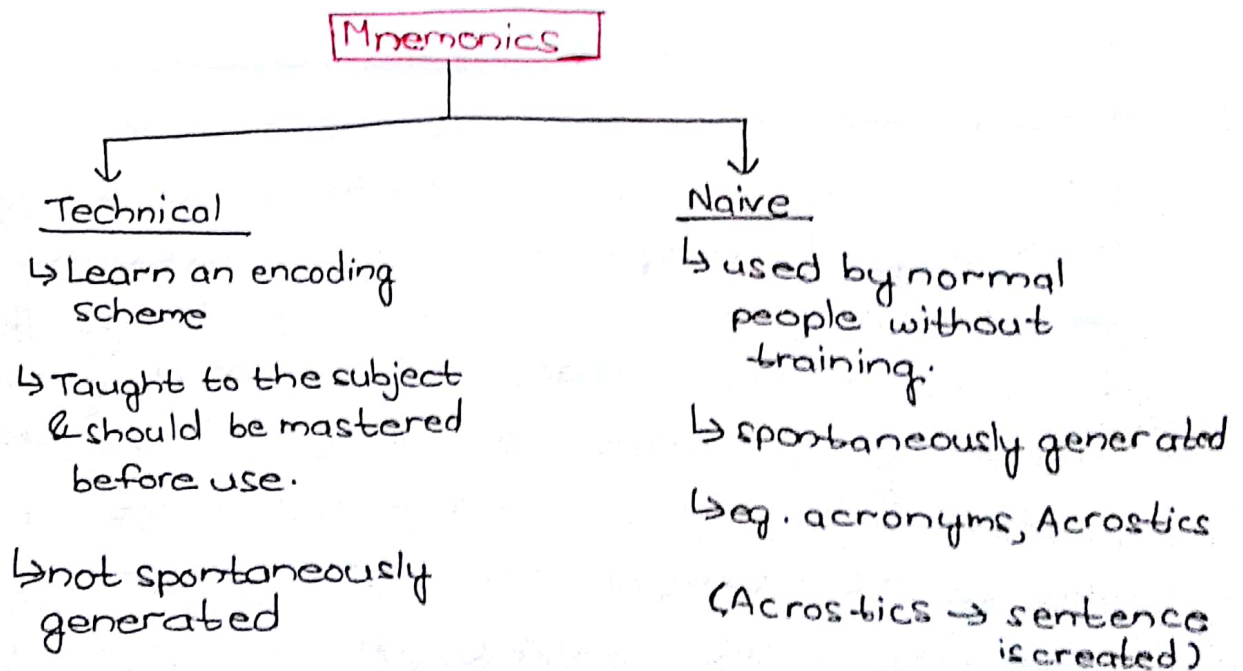 Mnemonics
Technical
↳ Learn an encoding
scheme
↳ Taught to the subject
& should be mastered
before use.
↳ not spontaneously
generated
Naive
↳ used by normal
people without
training.
↳ spontaneously generated
↳ eg. acronyms, Acrostics
(Acrostics → sentence
is created)